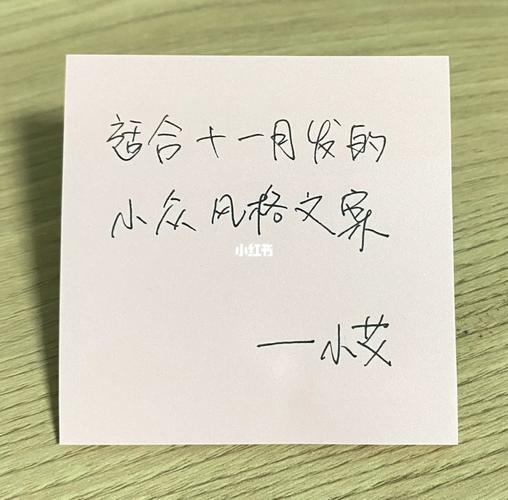 适合十一月发的
小众风格文案
小红书
—小艾